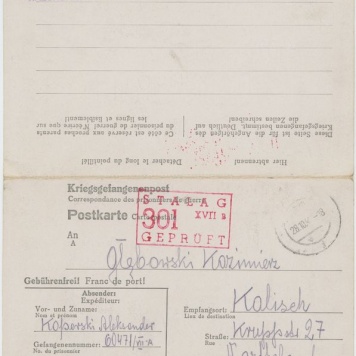 Diese Seite ist für die Angehörigen des
Kriegsgefangenen bestimmt. Deutlich auf
die Zeilen schreiben!
Ce côté est réservé aux proches parents
du prisonnier de guerre! N'écrire que sur
les lignes et lisiblement!
Hier abtrennen!
Détacher le long du pointillé!
Kriegsgefangenenpost
Correspondance des prisonniers de guerre
Postkarte Carte postale
STALAG
301 XVII
GEPRÜFT
An
A
Głębowski Kazimierz
Gebührenfrei! Franc de port!
Absender:
Expéditeur:
Vor- und Zuname:
Nom et prénom
Aleksander
Gefangenennummer:
No. du prisonnier
Empfangsort:
Lieu de destination
Kalisch
Straße:
Rue
Kruppstr 27